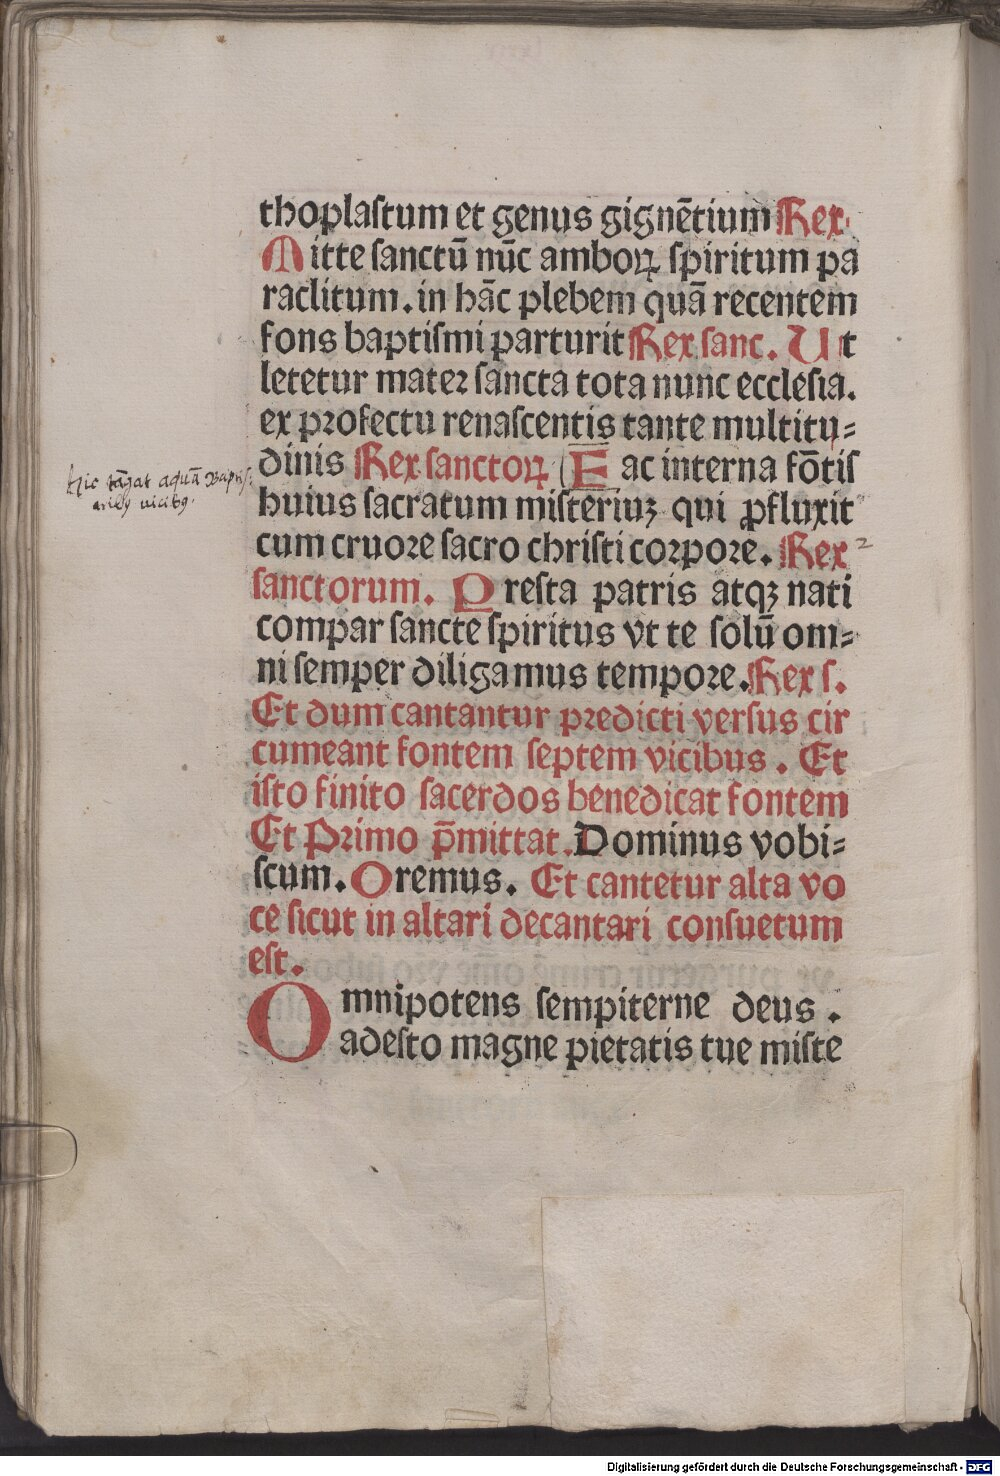 thoplaſtum et genus gignētium Rex.
Mitte ſanctū nūc amboꝝ ſpiritum pa
raclitum. in hāc plebem quā recentem
fons baptiſmi parturit Rex ſanc. Ut
letetur mater ſancta tota nunc eccleſia.
ex profectu renaſcentis tante multitu=
dinis Rex ſanctoꝝ Fac interna fōtiſ
huius ſacratum miſteriuʒ qui ꝓfluxit
cum cruore ſacro chriſti corpore. Rex 2
ſanctorum. Preſta patris atqʒ nati
compar ſancte ſpiritus vt te ſolū om=
ni ſemper diligamus tempore. Rex ſ.
Et dum cantantur predicti verſus cir
cumeant fontem ſeptem vicibus. Et
iſto finito ſacerdos benedicat fontem
Et Primo p̄mittat. Dominus vobi=
ſcum. Oremus. Et cantetur alta vo
ce ſicut in altari decantari conſuetum
eſt.
Omnipotens ſempiterne deus.
adeſto magne pietatis tue miſte
Hic tāgat aquā Baptiſ
vicibꝫ
Digitalisierung gefördert durch die Deutsche Forschungsgemeinschaft - DFG